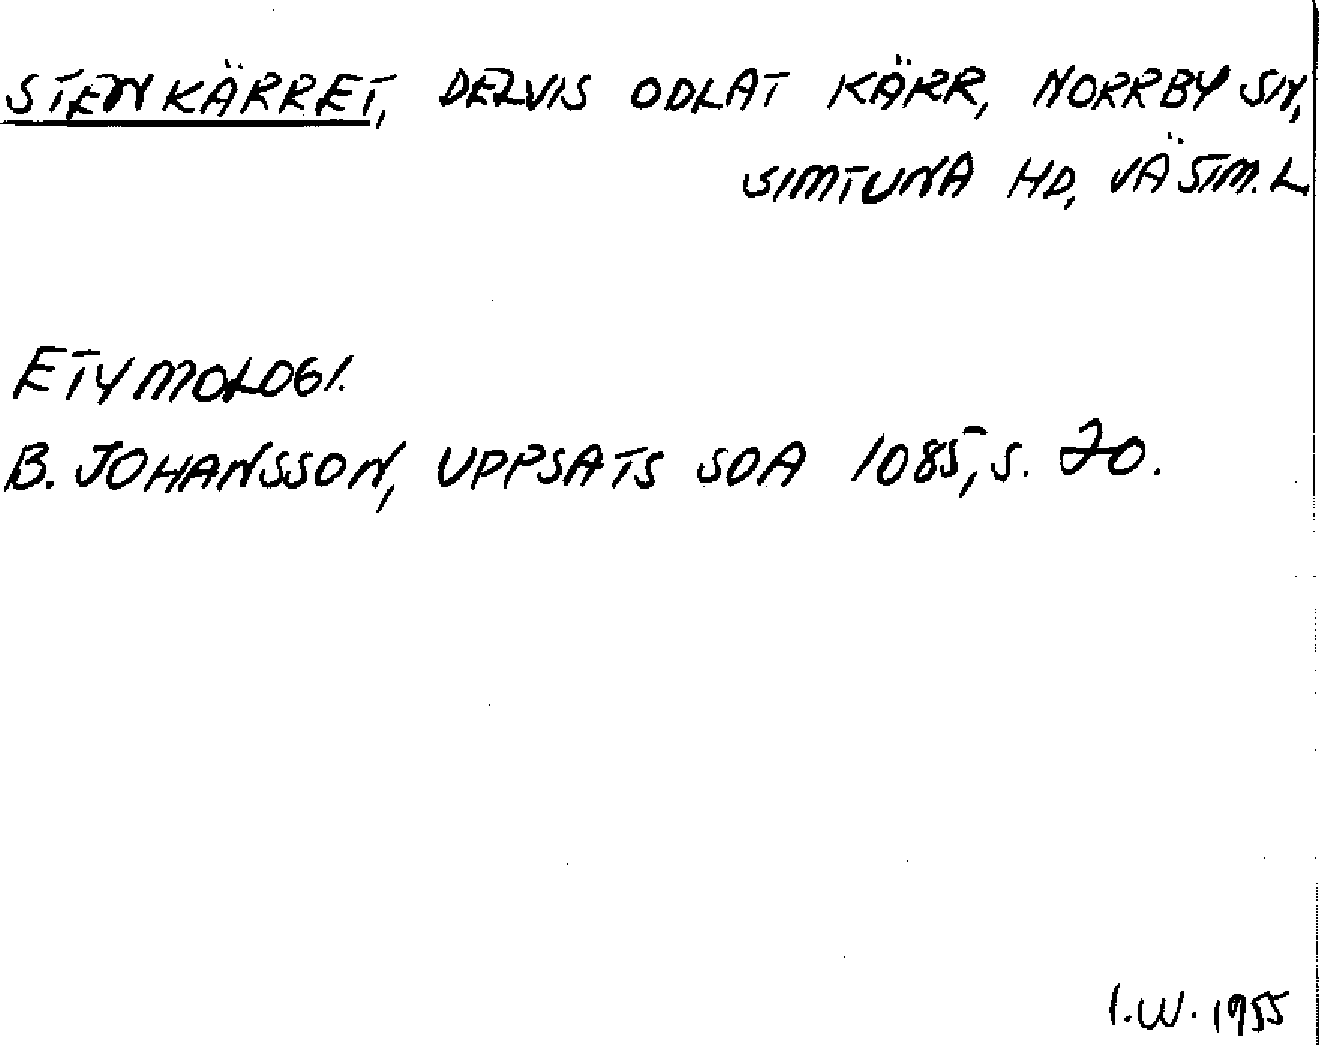 STENKÄRRET, DELVIS ODLAT KÄRR, NORRBY SN,
SIMTUNA HD, VÄSTM. L
ETYMOLOGI.
B. JOHANSSON, UPPSATS SOA 1085, s. 70.
I.W. 1955